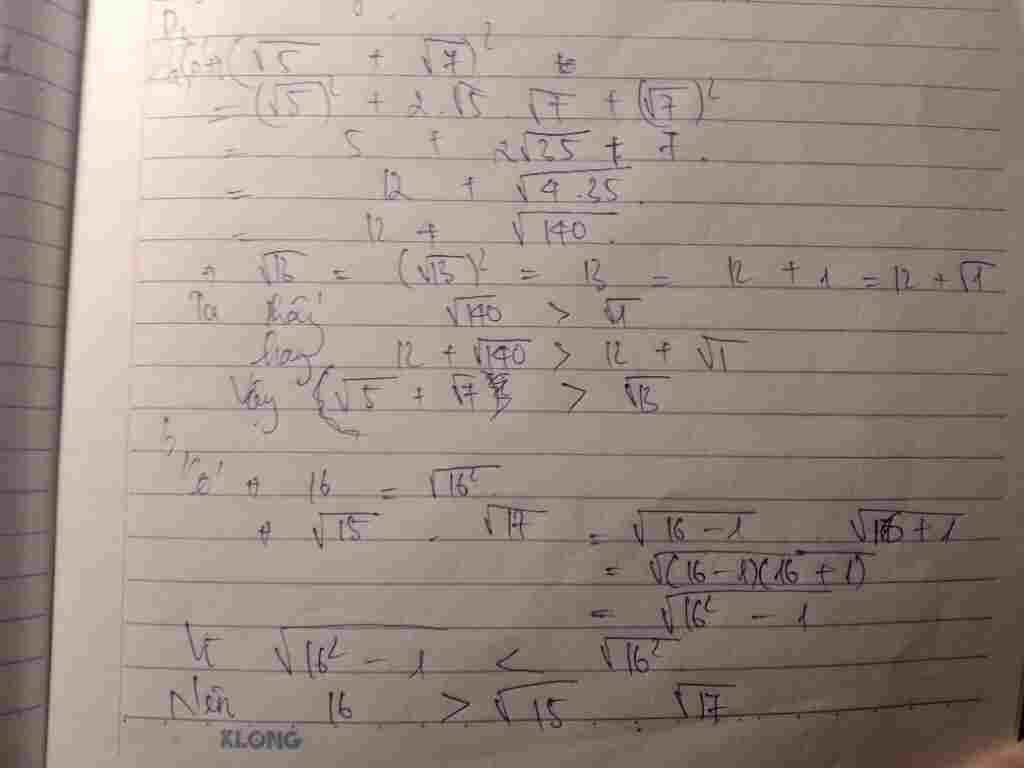 (√5 + √7)²
= (√5)² + 2.√5.√7 + (√7)²
= 5 + 2√35 + 7.
= 12 + √4.35.
= 12 + √140.
+ √13 = (√13)² = 13 = 12 + 1 = 12 + √1
Ta thấy √140 > √1
hay 12 + √140 > 12 + √1
Vậy √5 + √7 > √13
Có + 16 = √16²
+ √15 . √17 = √16 - 1 √16 + 1
= √(16 - 1)(16 + 1)
= √16² - 1
Vì √16² - 1 < √16²
Nên 16 > √15 . √17
KLONG